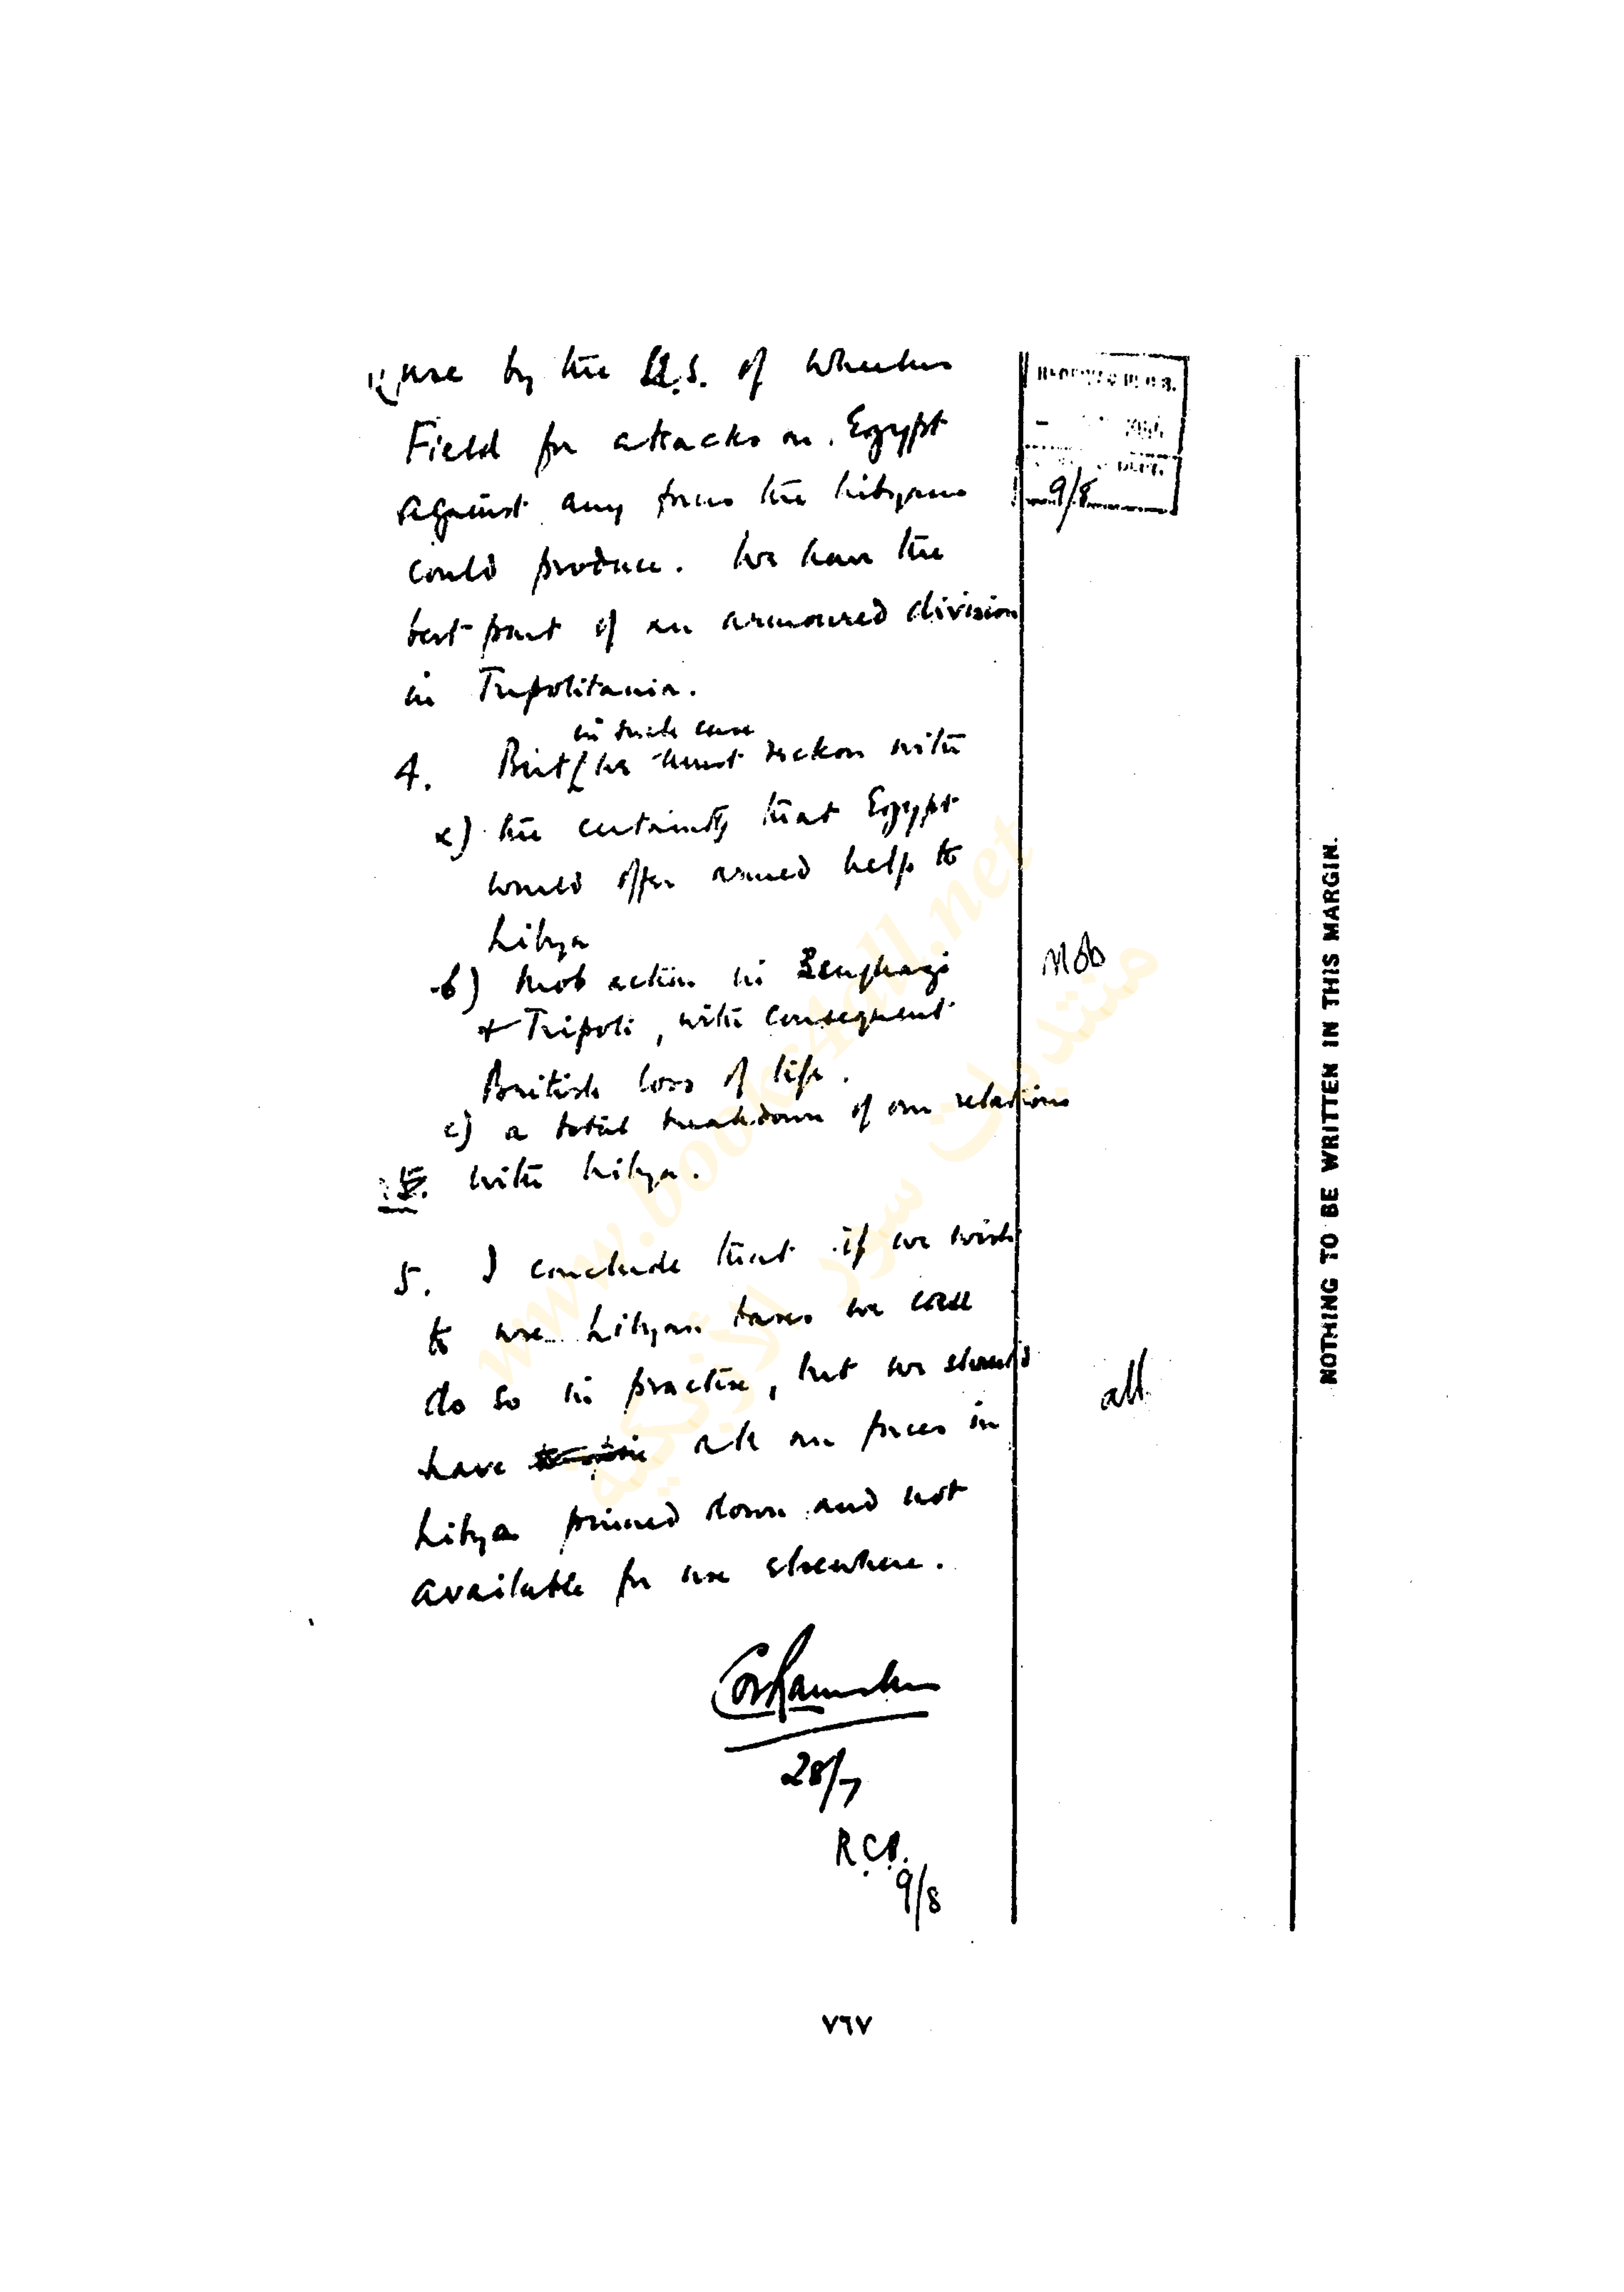 use by the U.S. of Wheelus
Field for attacks on Egypt
against any forces the Libyans
could produce. We have the
best part of an armoured division
in Tripolitania.
in such case
4. But we must reckon with
a) the certainty that Egypt
would offer armed help to
Libya
b) mob action in Benghazi
+ Tripoli, with consequent
British loss of life.
c) a total breakdown of our relations
with Libya.
5. I conclude that if we wish
to use Libyan bases we could
do so in practise, but we should
have all our forces in
Libya pinned down and not
available for use elsewhere.
28/7
R.C.
9/8
9/8
Mob
all
NOTHING TO BE WRITTEN IN THIS MARGIN.
www.books4all.net
منتديات سور الأزبكية
٧٦٧